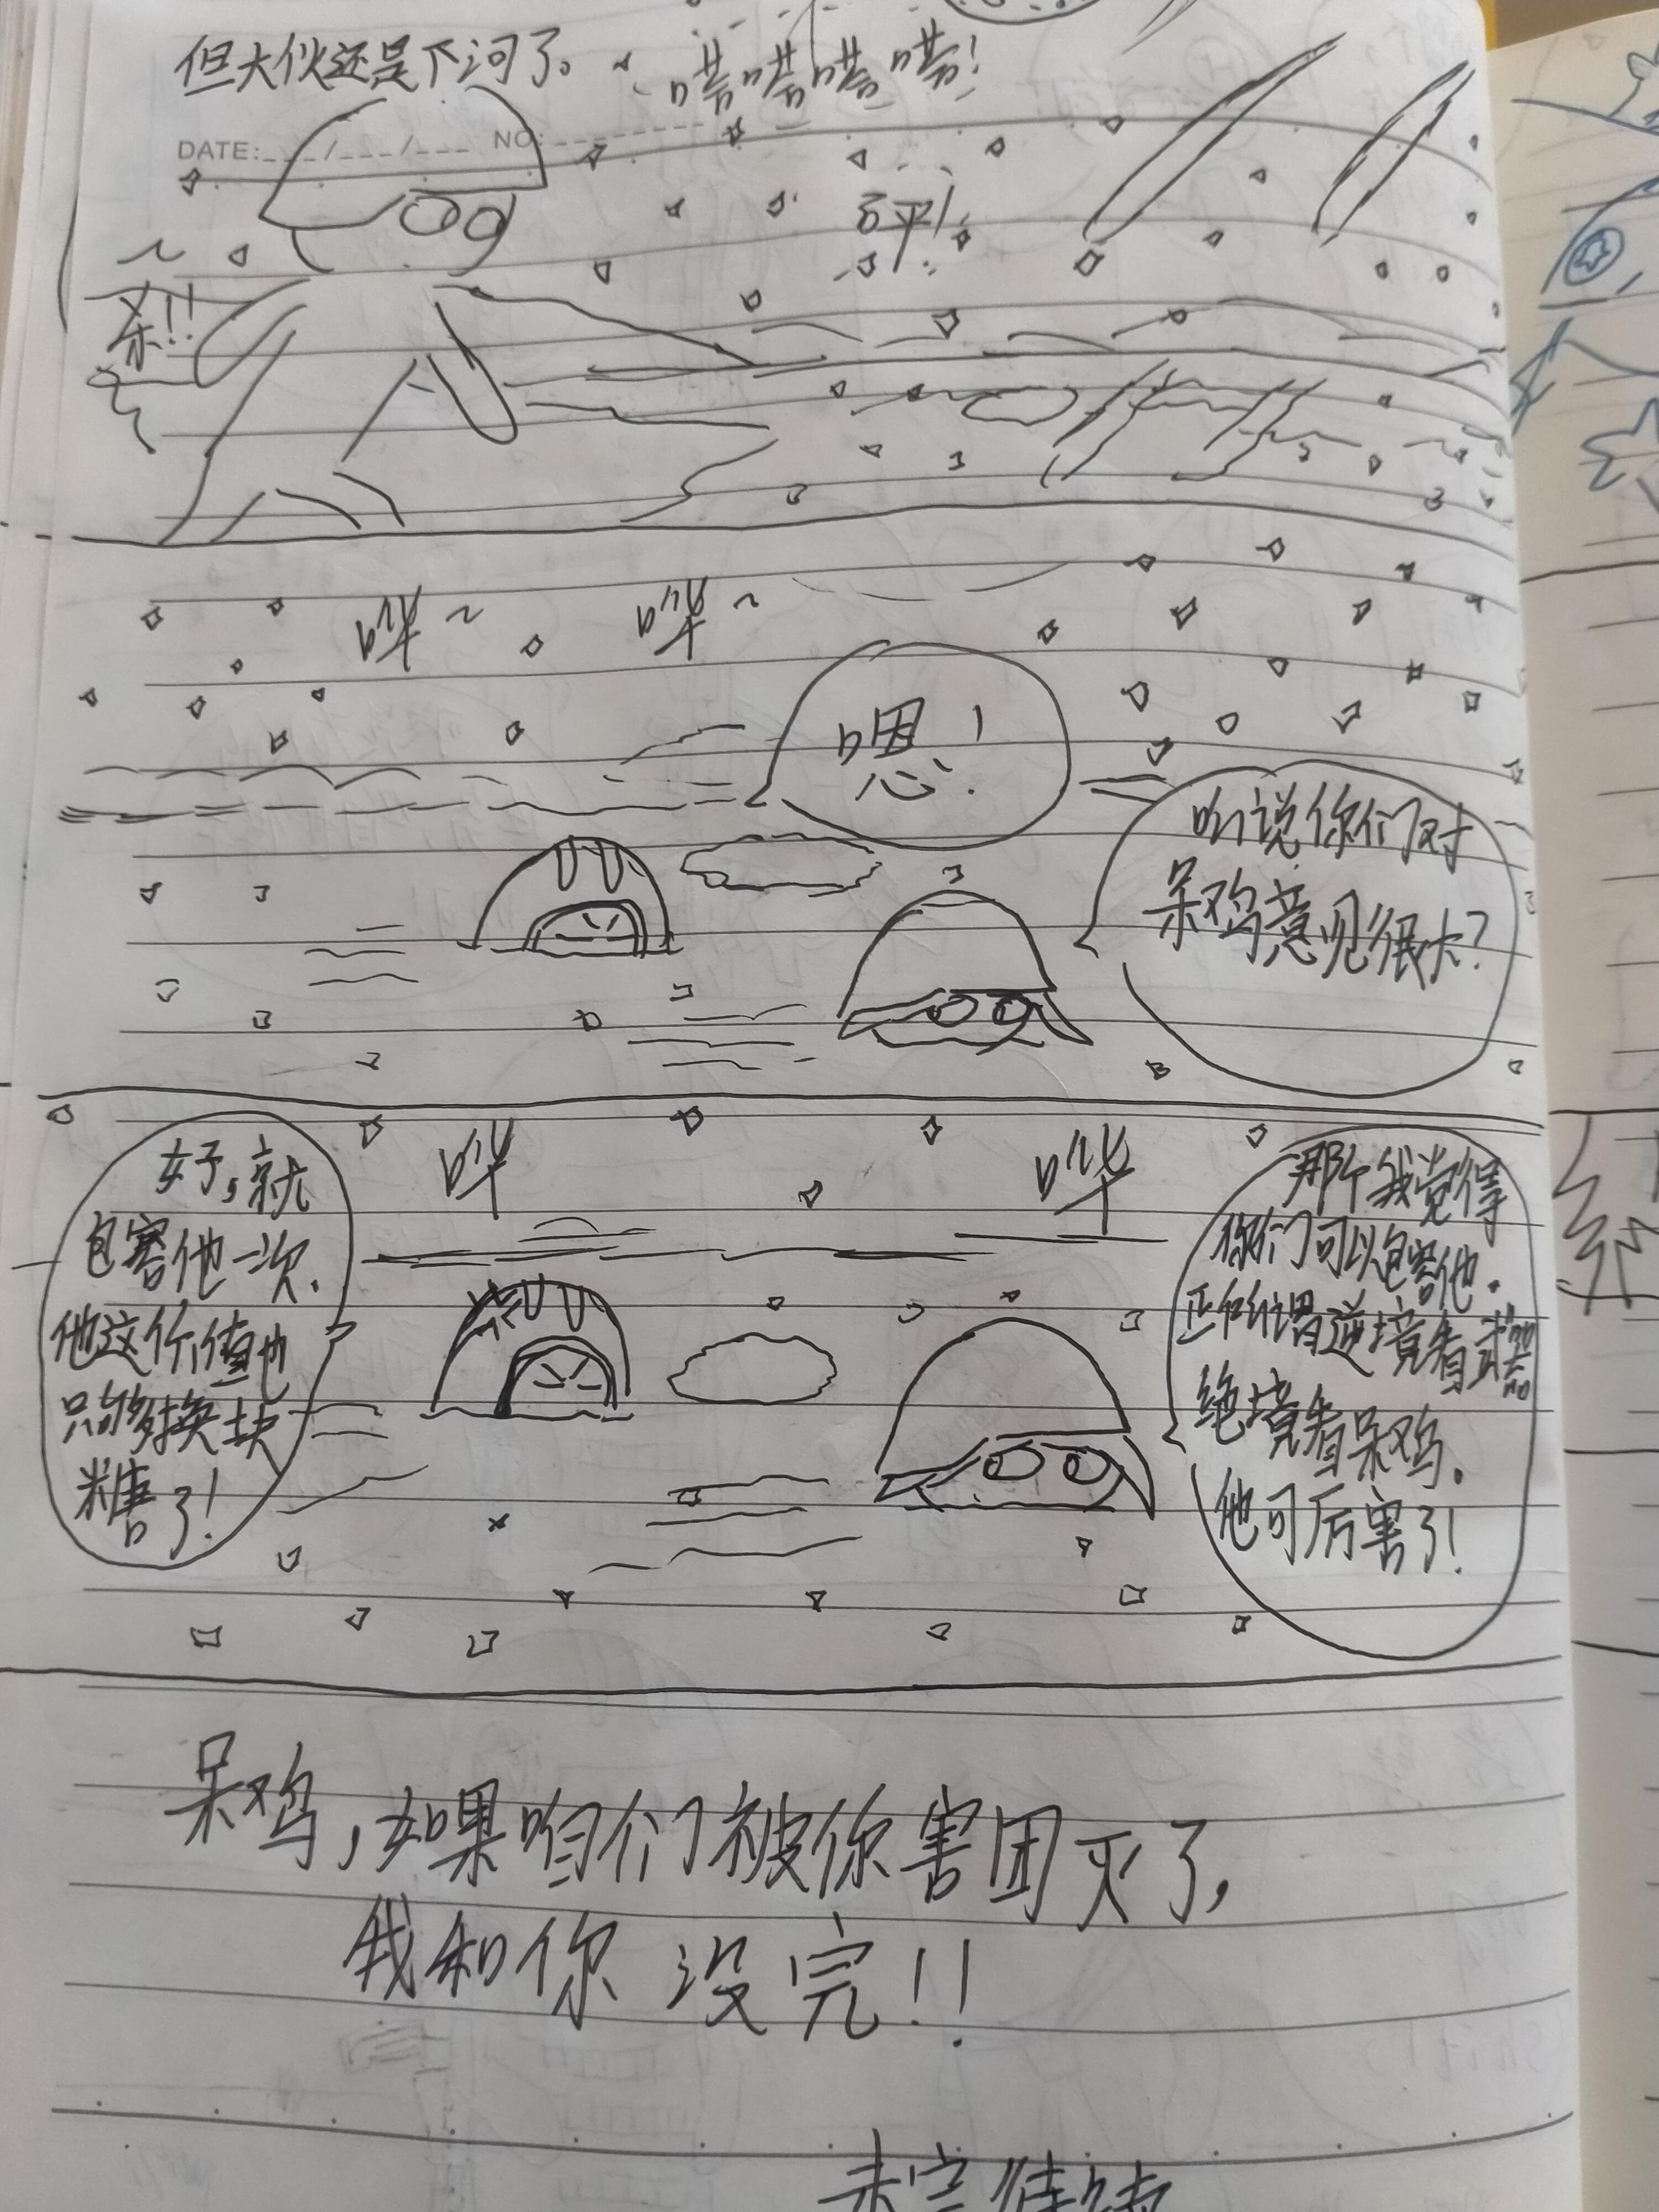 但大伙还是下河了。
嗒嗒嗒嗒!
DATE: / / NO:
呯!
哗~ 哗~
嗯!
听说你们对
呆鸡意见很大?
哗 哗
好,就
包容他一次.
他这价值也
只够换块
糖了!
那个我觉得
你们可以包容他。
正所谓逆境看武器
绝境看呆鸡。
他可厉害了!
呆鸡,如果咱们被你害团灭了,
我和你没完!!
未完待续